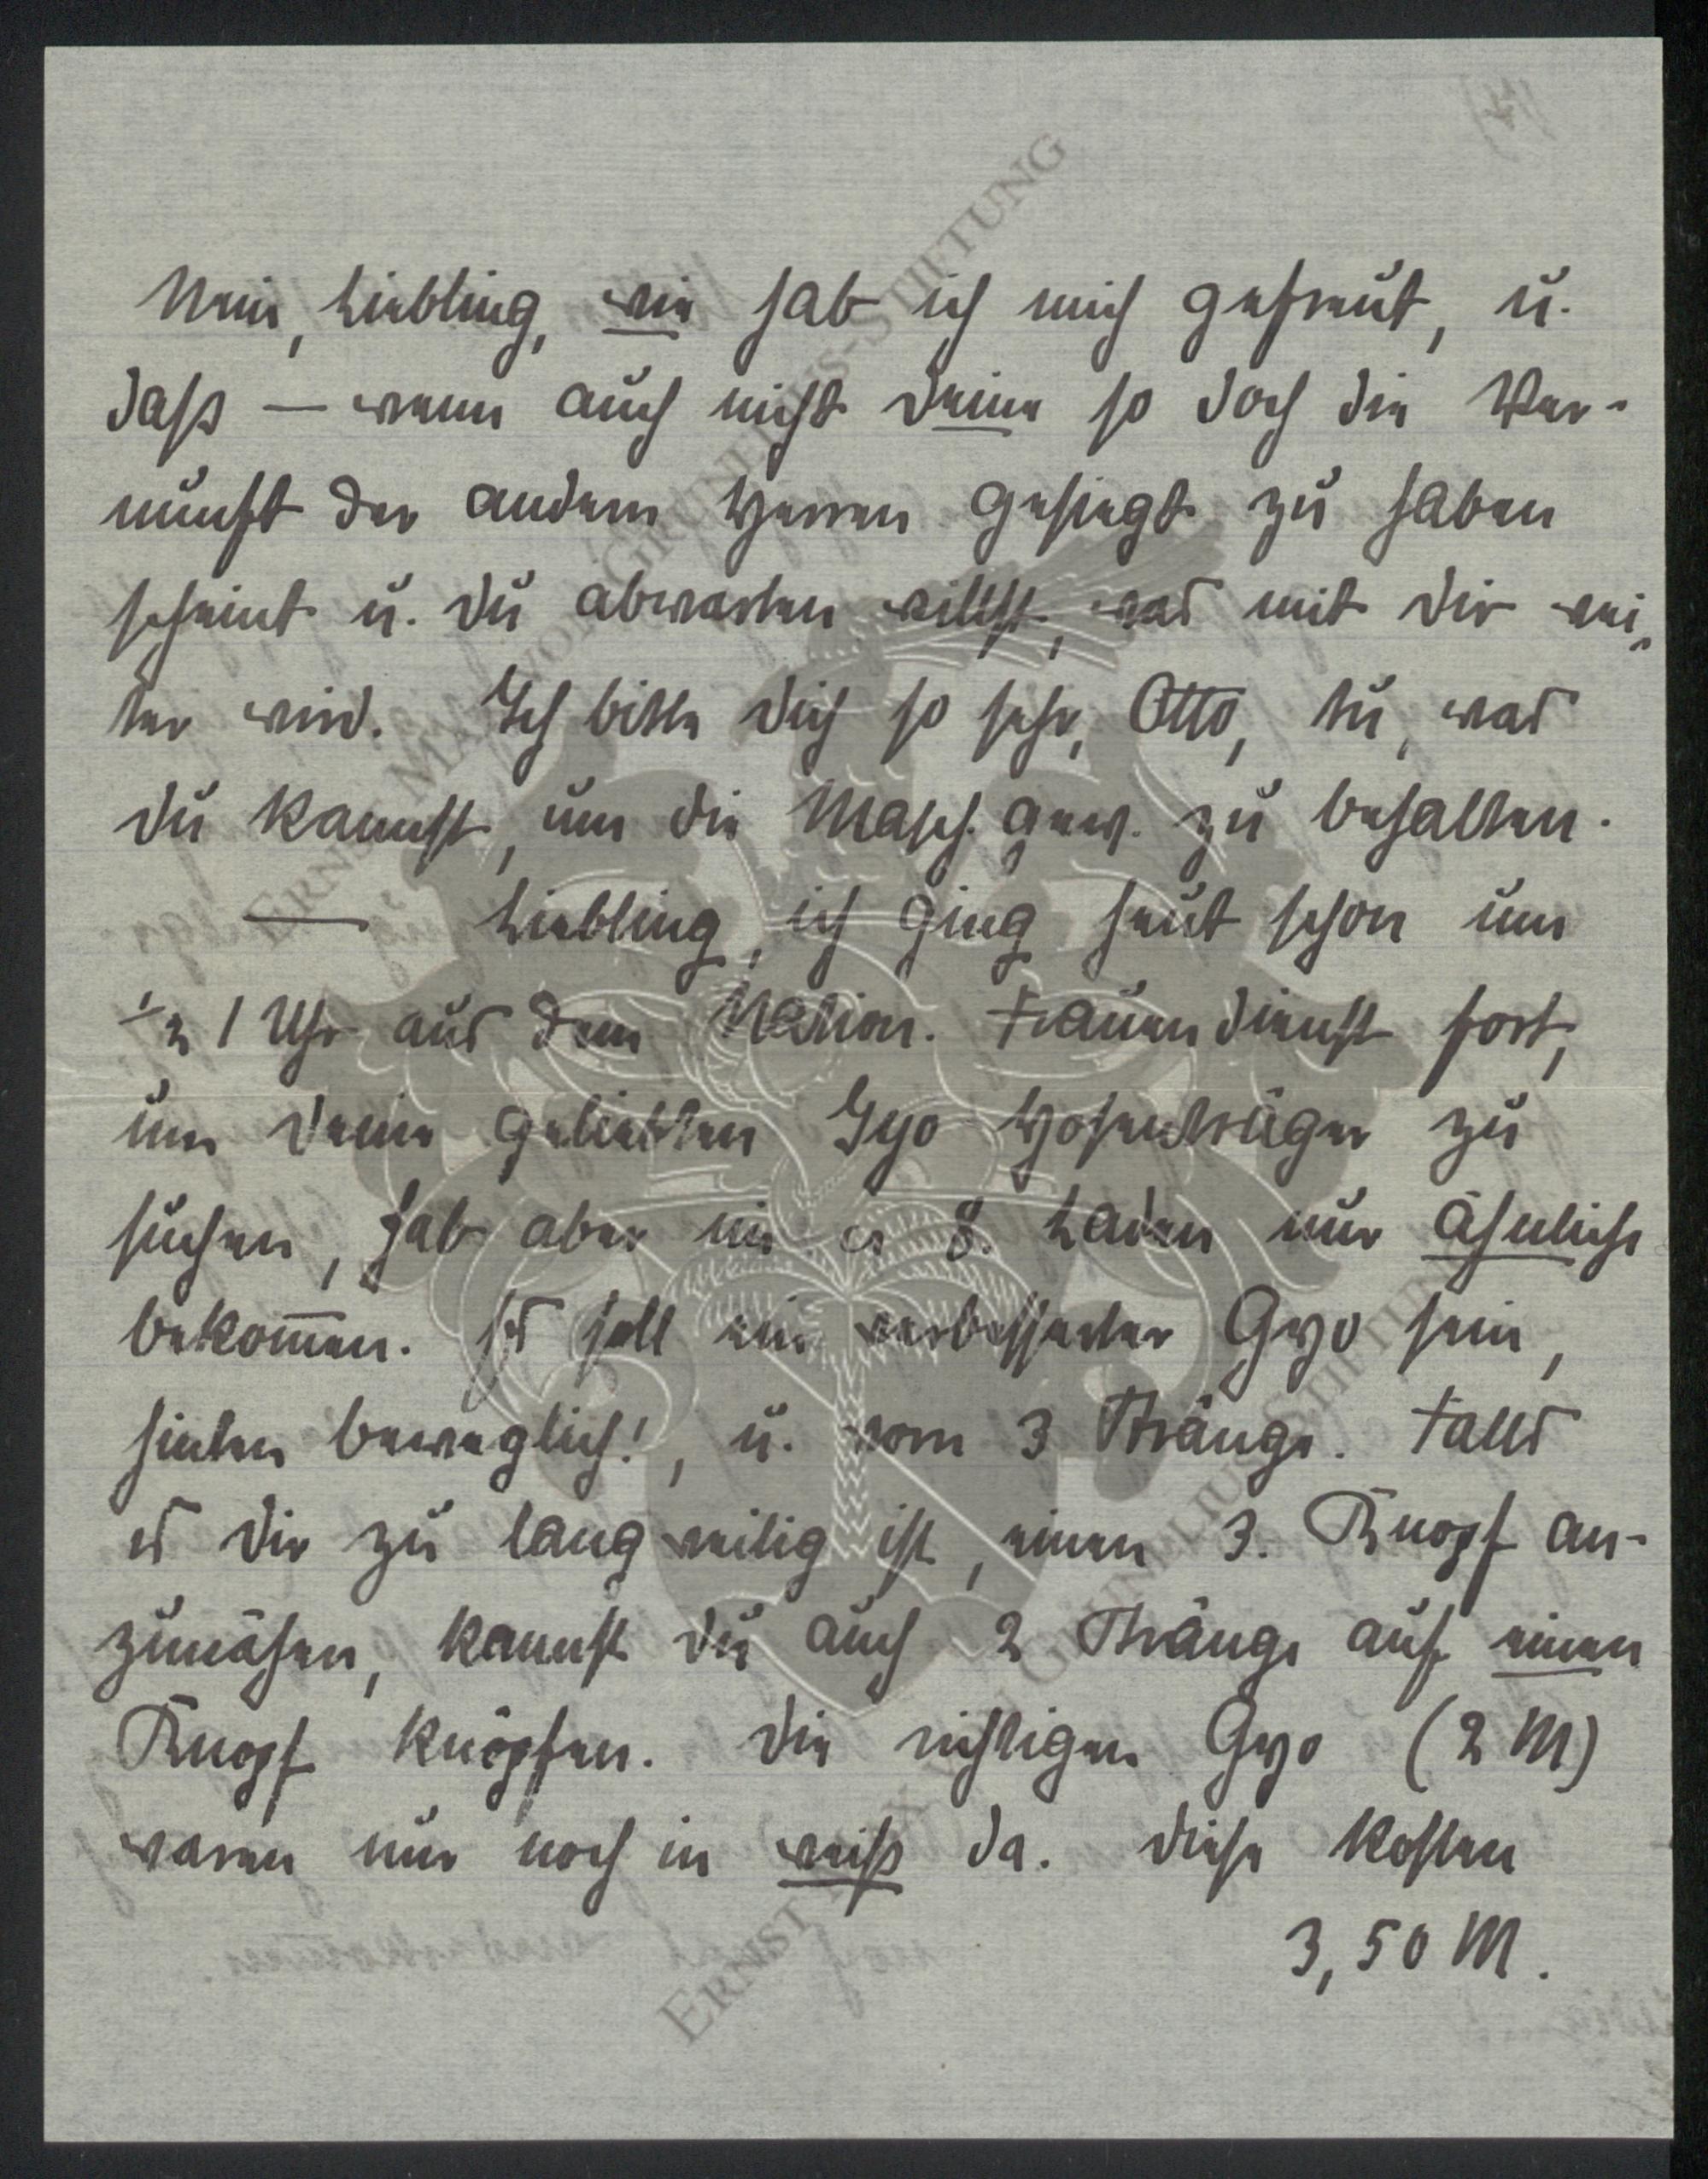 Nein, Liebling, wie hab ich mich gefreut, u.
dass — wenn auch nicht deine so doch die Ver-
nunft der andern Herren gesiegt zu haben
scheint u. du abwarten willst, was mit dir wei-
ter wird. Ich bitte dich so sehr, Otto, tu, was
du kannst, um die Masch. gew. zu behalten.
— Liebling, ich ging heut schon um
½ 1 Uhr aus dem Nation. Frauendienst fort,
um deine geliebten Gyo Hosenträger zu
suchen, hab aber im 8. Laden nur ähnliche
bekommen. Es soll ein verbesserter Gyo sein,
hinten beweglich!, u. vorn 3 Stränge. Falls
es dir zu langweilig ist, einen 3. Knopf an-
zunähen, kannst du auch 2 Stränge auf einen
Knopf knöpfen. Die richtigen Gyo (2 M)
waren nur noch in weiss da. Diese kosten
3,50 M.
ERNST MAX VON GRUNELIUS-STIFTUNG
ERNST MAX VON GRUNELIUS-STIFTUNG